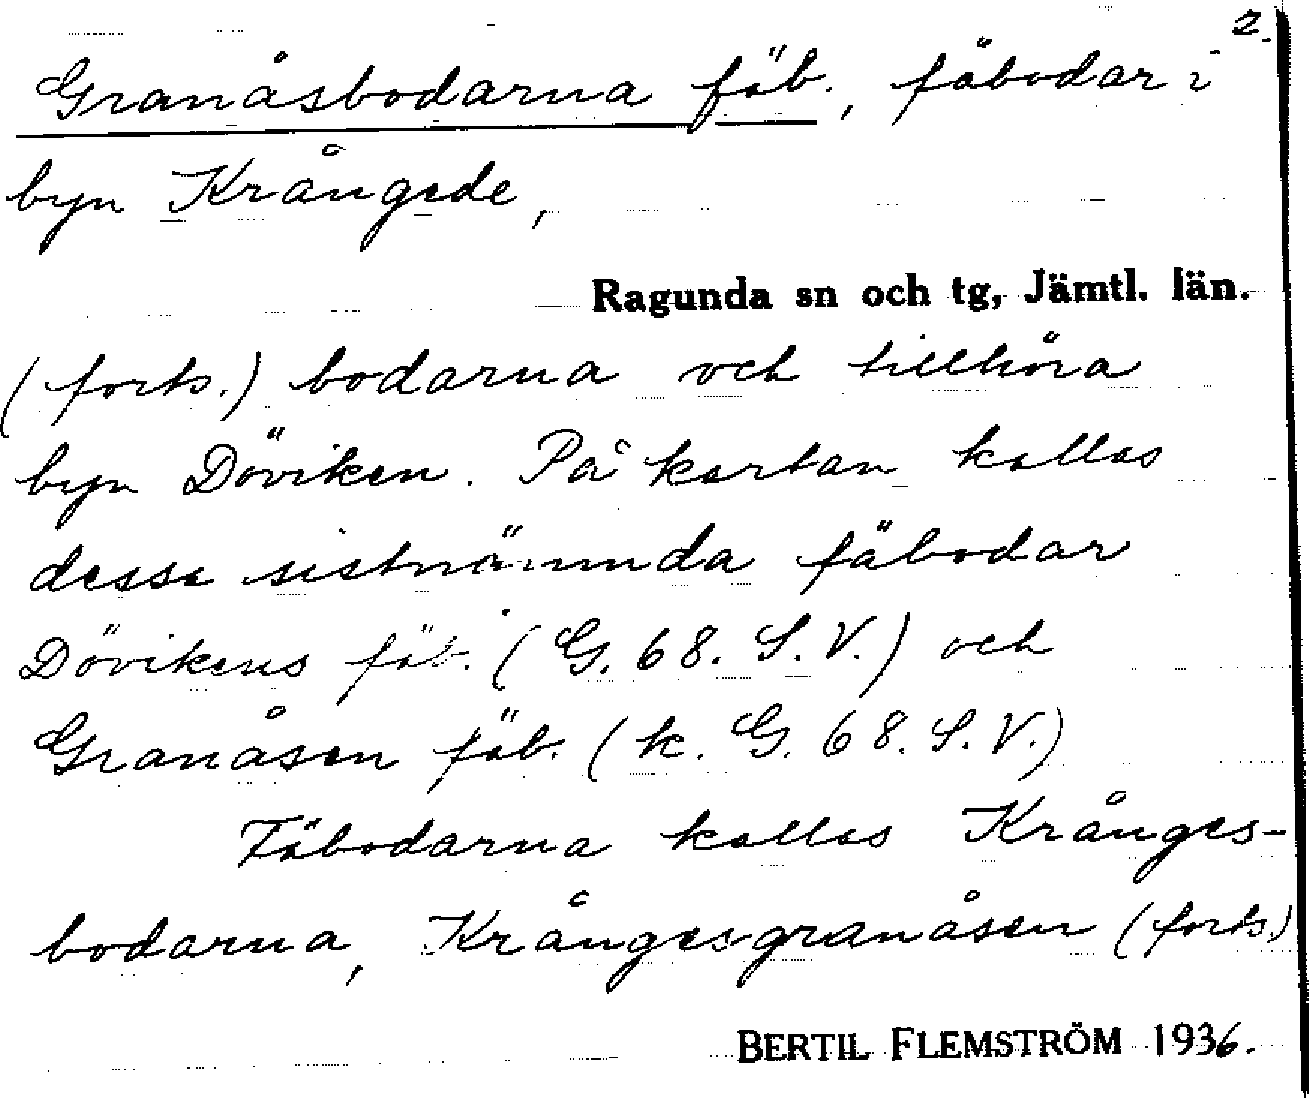 2.
Granåsbodarna fäb., fäbodar i
byn Krångede,
Ragunda sn och tg, Jämtl. län.
(forts.) bodarna och tillhöra
byn Döviken. På kartan kallas
dessa sistnämnda fäbodar
Dövikens fäb. (G. 68. S.V.) och
Granåsen fäb. (k. G. 68. S.V.)
Fäbodarna kallas Krånges-
bodarna, Krångesgranåsen (forts.)
BERTIL FLEMSTRÖM 1936.